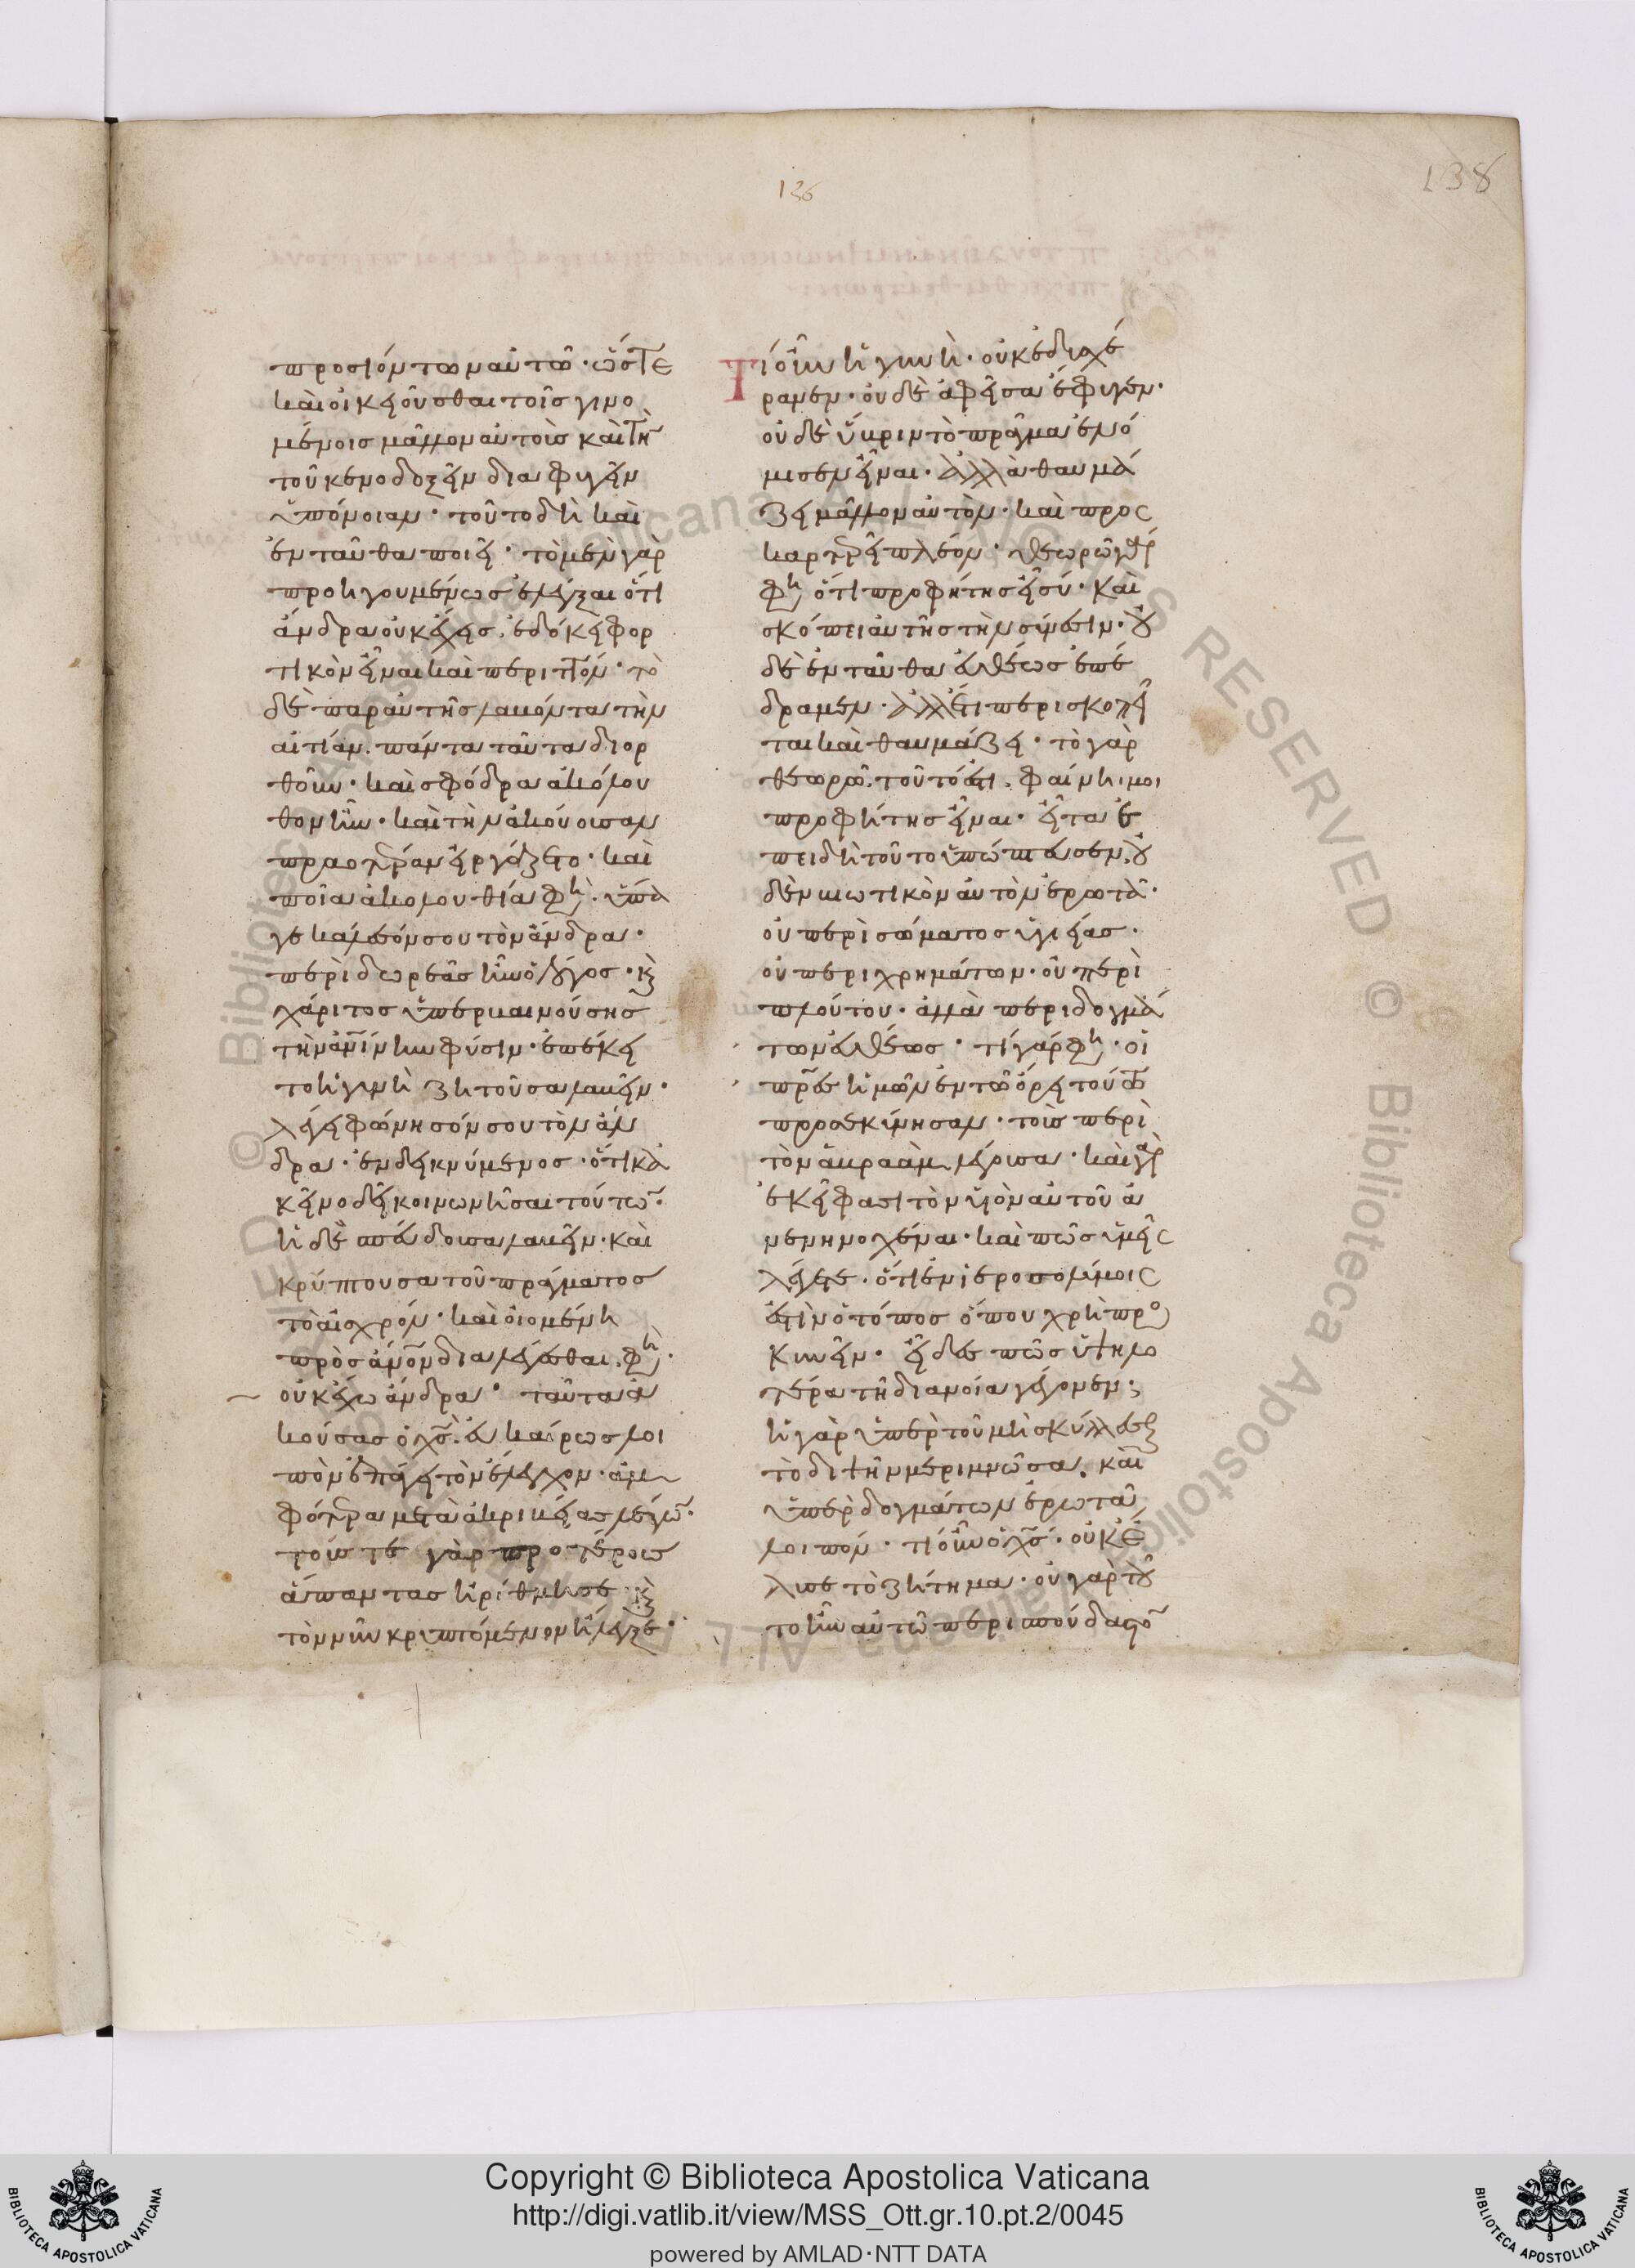 136
138
προσιόντων αὐτῶ· ὥστε
καὶ οἰκειοῦσθαι τοῖσ γινο
μένοισ μᾶλλον αὐτοὺσ καὶ τὴν
τοῦ κενοδοξεῖν διαφυγεῖν
ὑπόνοιαν· τοῦτο δὴ καὶ
ἐνταῦθα ποιεῖ· τὸ μὲν γὰρ
προηγουμένωσ ἐλέγξαι ὅτι
ἄνδρα οὐκ ἔχεισ, ἐδόκει φορ
τικὸν εἶναι καὶ περιττόν· τὸ
δὲ παρ αὐτῆσ λαβόντα τὴν
αἰτίαν, πάντα ταῦτα διορ
θοῦν· καὶ σφόδρα ἀκόλου
θον ἦν· καὶ τὴν ἀκούουσαν
πραοτέραν εἰργάζετο· καὶ
ποία ἀκολουθία φη· ὕπα
γε κάλεσόν σου τὸν ἄνδρα·
περὶ δωρεᾶσ ἦν ὁ λόγοσ· κ
χάριτοσ ὑπερβαινούσησ
τὴν ἀνίνην φύσιν· ἐπέκει
το ἡ γυνὴ ζητοῦσα λαβεῖν·
λέγει φώνησόν σου τὸν ἄν
δρα· ἐνδεικνύμενοσ· ὅτι κἀ
κεῖνο δεῖ κοινωνῆσαι τούτω·
ἡ δὲ σπεύδουσα λαβεῖν· καὶ
κρύπτουσα τοῦ πράγματοσ
τὸ αἰσχρόν· καὶ οἰομένη
πρὸσ ἄνον διαλέγεσθαι, φη·
οὐκ ἔχω ἄνδρα· ταῦτα ἀ
κούσασ ὁ χσ· εὐκαίρωσ λοι
πὸν ἐπάγει τὸν ἔλεγχον· ἀμ
φότερα μετὰ ἀκριβείασ λέγω·
τούσ τε γὰρ προτέρουσ
ἅπαντασ ἠρίθμησε· κ
τὸν νῦν κρυπτόμενον ἤλεγξε·
Τί οὖν ἡ γυνὴ· οὐκ ἐδυσχέ
ρανεν· οὐδὲ ἀφεῖσα ἔφυγεν·
οὐδὲ ὕβριν τὸ πρᾶγμα ἐνό
μισεν εἶναι· ἀλλὰ θαυμά
ζει μᾶλλον αὐτὸν· καὶ προσ
καρτερεῖ πλέον· θεωρῶ γὰρ
φη ὅτι προφήτησ εἶ σύ· καὶ
σκόπει αὐτῆσ τὴν σύνεσιν· οὐ
δὲ ἐνταῦθα εὐθέωσ ἐπέ
δραμεν· ἀλλ ἔτι περισκοπεῖ
ται καὶ θαυμάζει· τὸ γὰρ
θεωρῶ, τοῦτό ἐστι, φαίνη μοι
προφήτησ εἶναι· εἶτα ἐ
πειδὴ τοῦτο ὑπώπτευσεν, οὐ
δὲν βιωτικὸν αὐτὸν ἐρωτᾶ·
οὐ περὶ σώματοσ ὑγιείασ·
οὐ περὶ χρημάτων· οὐ περὶ
πλούτου· ἀλλὰ περὶ δογμά
των εὐθέωσ· τί γάρ φη· οἱ
πρεσ ἡμῶν ἐν τῶ ὄρει τούτω
προσεκύνησαν· τοὺσ περὶ
τὸν ἀβραὰμ λέγουσα· καὶ γὰρ
ἐκεῖ φασι τὸν υἱὸν αὐτοῦ ἀ
νενηνοχέναι· καὶ πῶσ ὑμεῖσ
λέγετε· ὅτι ἐν ἱεροσολύμοισ
ἐστὶν ὁ τόποσ ὅπου χρὴ προσ
κυνεῖν· εἶδεσ πῶσ ὑψηλο
τέρα τῆ διανοία γέγονεν·
ἡ γὰρ ὑπὲρ τοῦ μὴ σκύλλεσθαι
τὸ δίψην μεριμνῶσα, καὶ
ὑπὲρ δογμάτων ἐρωτᾶ
λοιπόν· τί οὖν ὁ χσ· οὐκ ἔ
λυσε τὸ ζήτημα· οὐ γὰρ τοῦ
το ἦν αὐτῶ περισπούδαστο
Copyright © Biblioteca Apostolica Vaticana
http://digi.vatlib.it/view/MSS_Ott.gr.10.pt.2/0045
powered by AMLAD·NTT DATA
BIBLIOTECA APOSTOLICA VATICANA
BIBLIOTECA APOSTOLICA VATICANA